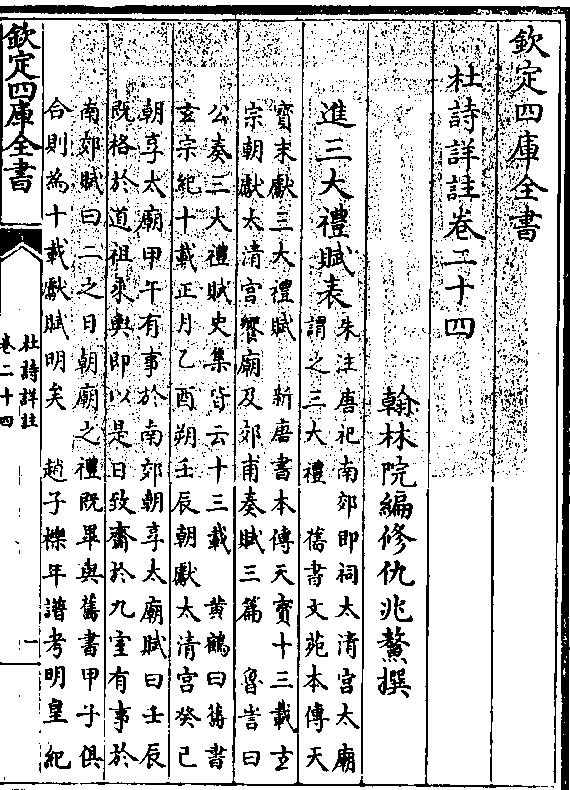 欽定四庫全書
杜詩詳註卷二十四
翰林院編修仇兆鰲撰
進三大禮賦表
朱注唐祀南郊即祠太清宮太廟
謂之三大禮　舊書文苑本傳天
寶末獻三大禮賦　新唐書本傳天寶十三載玄
宗朝獻太清宮饗廟及郊甫奏賦三篇　魯訔曰
公奏三大禮賦史集皆云十三載　黃鶴曰舊書
玄宗紀十載正月乙酉朔壬辰朝獻太清宮癸己
朝享太廟甲午有事於南郊朝享太廟賦曰壬辰
既格於道祖乘輿即以是日致齋於九室有事於
南郊賦曰二之日朝廟之禮既畢與舊書甲子俱
合則為十載獻賦明矣　趙子櫟年譜考明皇紀
欽定四庫全書
杜詩詳註
卷二十四
一